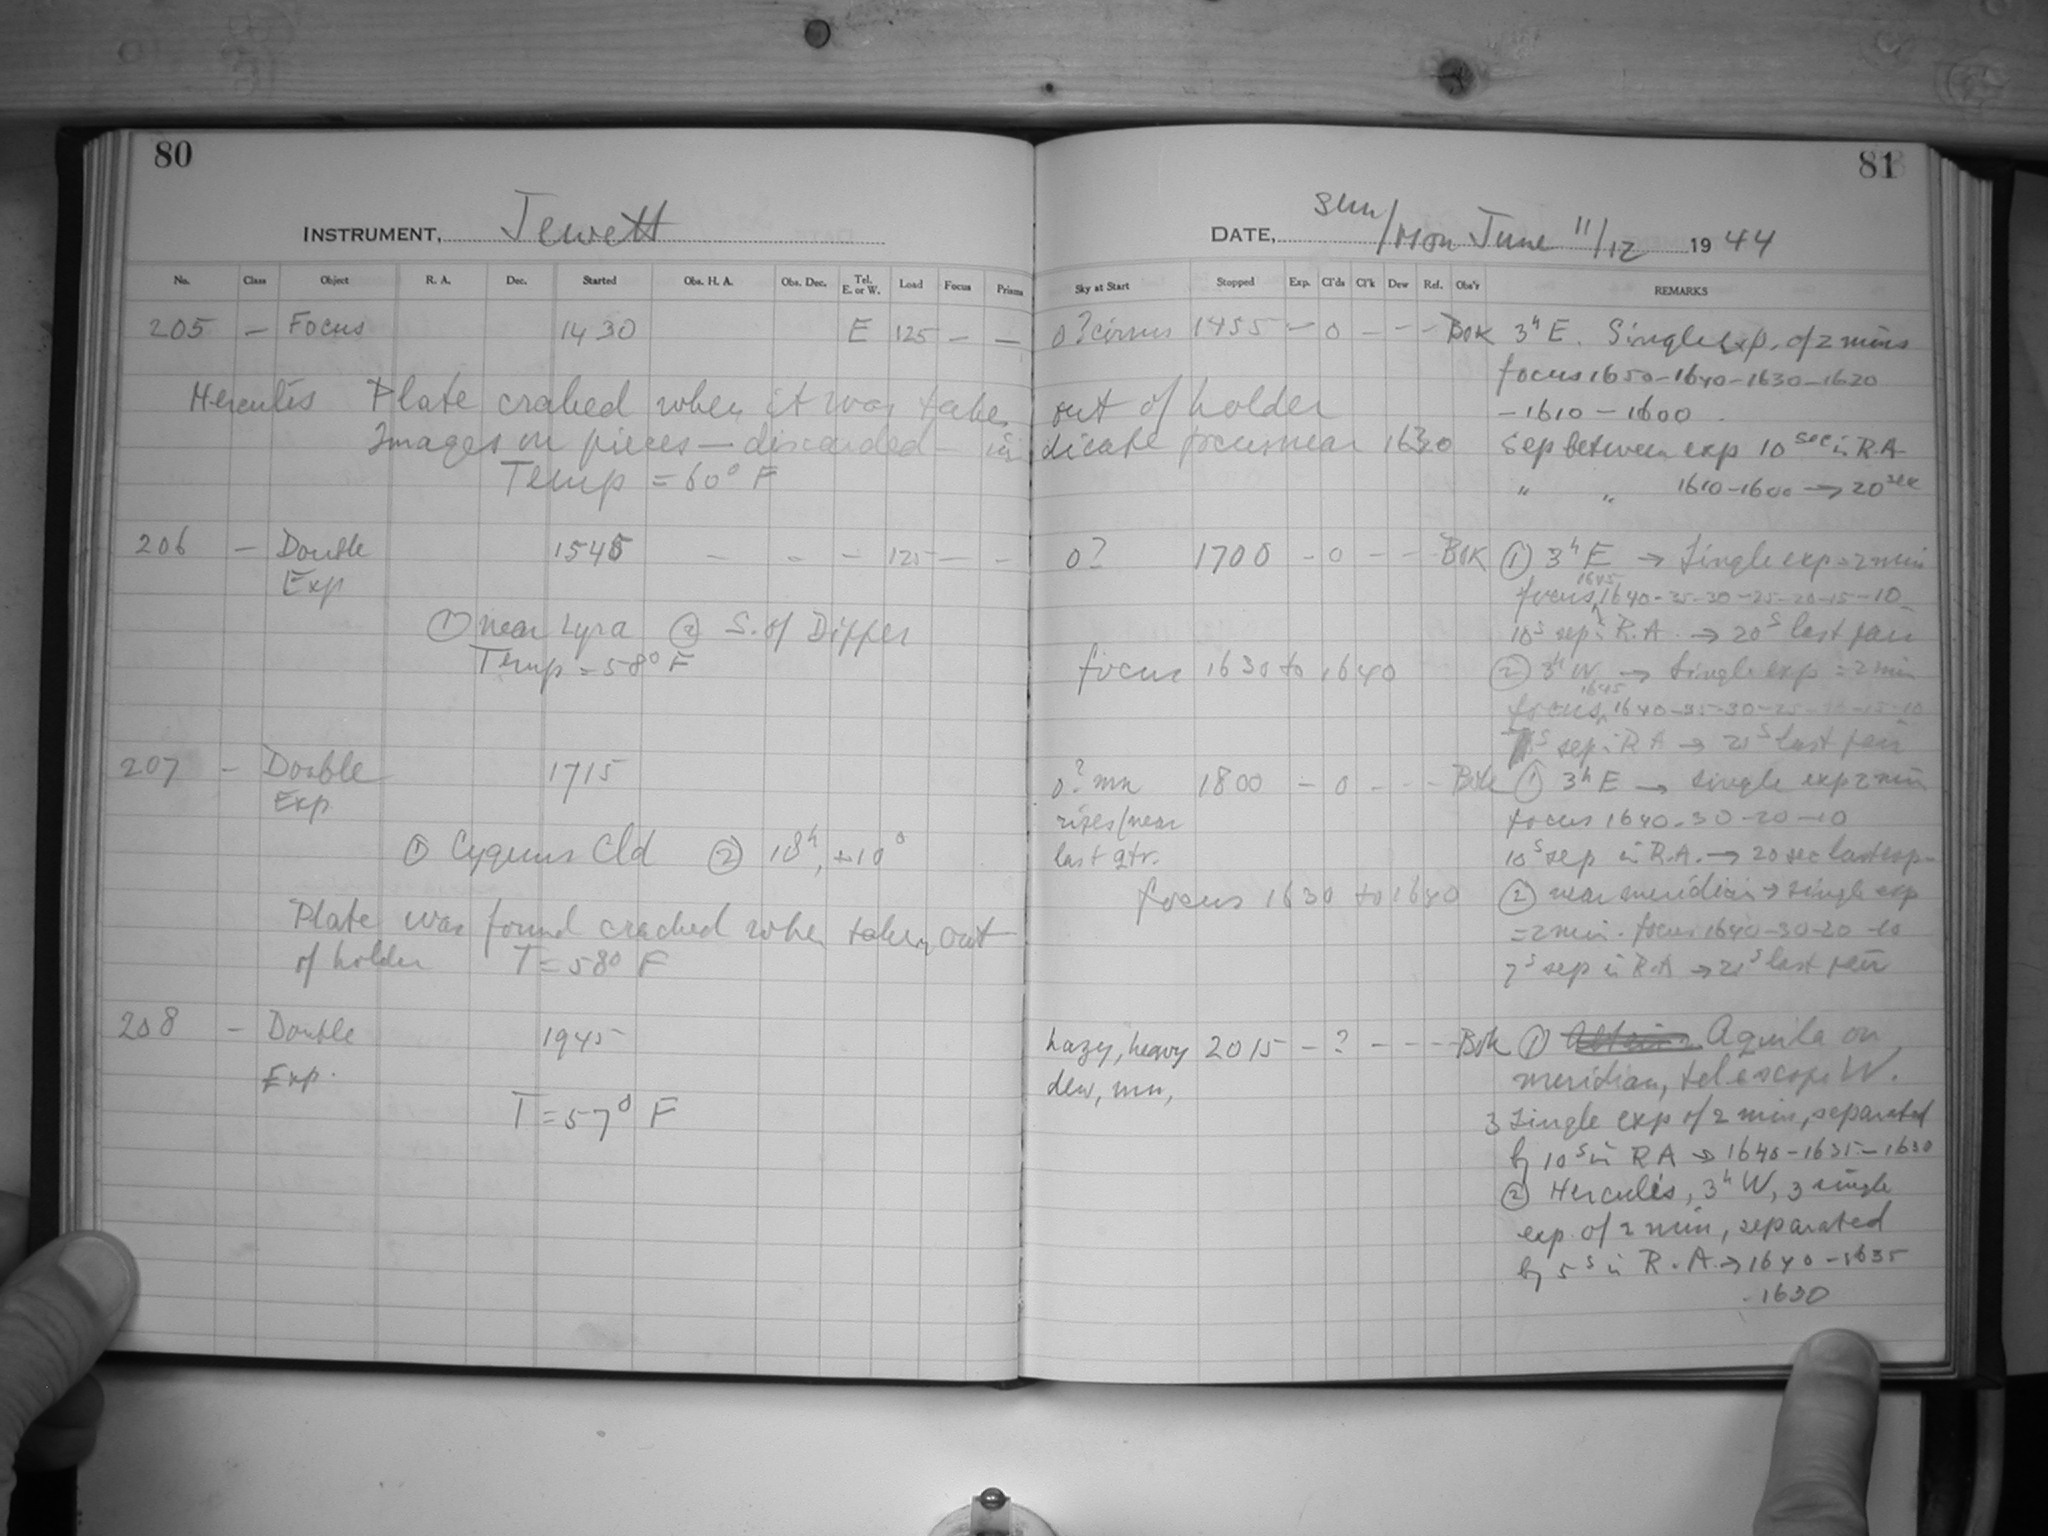 80
INSTRUMENT, Jewett
No. Class Object R. A. Dec. Started Obs. H. A. Obs. Dec. Tel. E. or W. Load Focus Prisms
205 — Focus 1430 E 125 — —
Hercules Plate cracked when it was taken
Images on pieces — discarded — in
Temp = 60° F
206 — Double 1545 — — — 125 — —
Exp
① near Lyra ② S. of Dipper
Temp = 58° F
207 — Double 1715
Exp.
① Cygnus Cld ② 18h, +10°
Plate was found cracked when taken out
of holder T = 58° F
208 — Double 1945
Exp.
T = 57° F
81
DATE, Sun/Mon June 11/12 1944
Sky at Start Stopped Exp. Cl'ds Cl'k Dew Ref. Obs'r REMARKS
0? cirrus 1455 — 0 — — — Bok 3h E. Single exp. of 2 mins
focus 1650-1640-1630-1620
out of holder - 1610 - 1600.
dicate focus near 1630 Sep between exp 10 sec in R.A.
" " 1610-1600 → 20 sec
0? 1700 — 0 — — — Bok ① 3h E → Single exp = 2 min
focus 1645 1640-35-30-25-20-15-10
10s sep in R.A. → 20s last pair
focus 1630 to 1640 ② 3h W → Single exp = 2 min
focus 1645 1640-35-30-25-20-15-10
7s sep in R A → 21s last pair
0? mn 1800 — 0 — — — Bok ① 3h E → single exp 2 min
rises/near focus 1640-30-20-10
last qtr. 10s sep in R.A. → 20 sec last exp.
focus 1630 to 1640 ② near meridian → single exp
= 2 min. focus 1640-30-20-10
7s sep in R.A → 21s last pair
hazy, heavy 2015 — ? — — — Bok ① Aquila on
dew, mn, meridian, telescope W.
3 single exp of 2 min, separated
by 10s in RA → 1640-1635-1630
② Hercules, 3h W, 3 single
exp. of 2 min, separated
by 5s in R.A. → 1640-1635
-1630